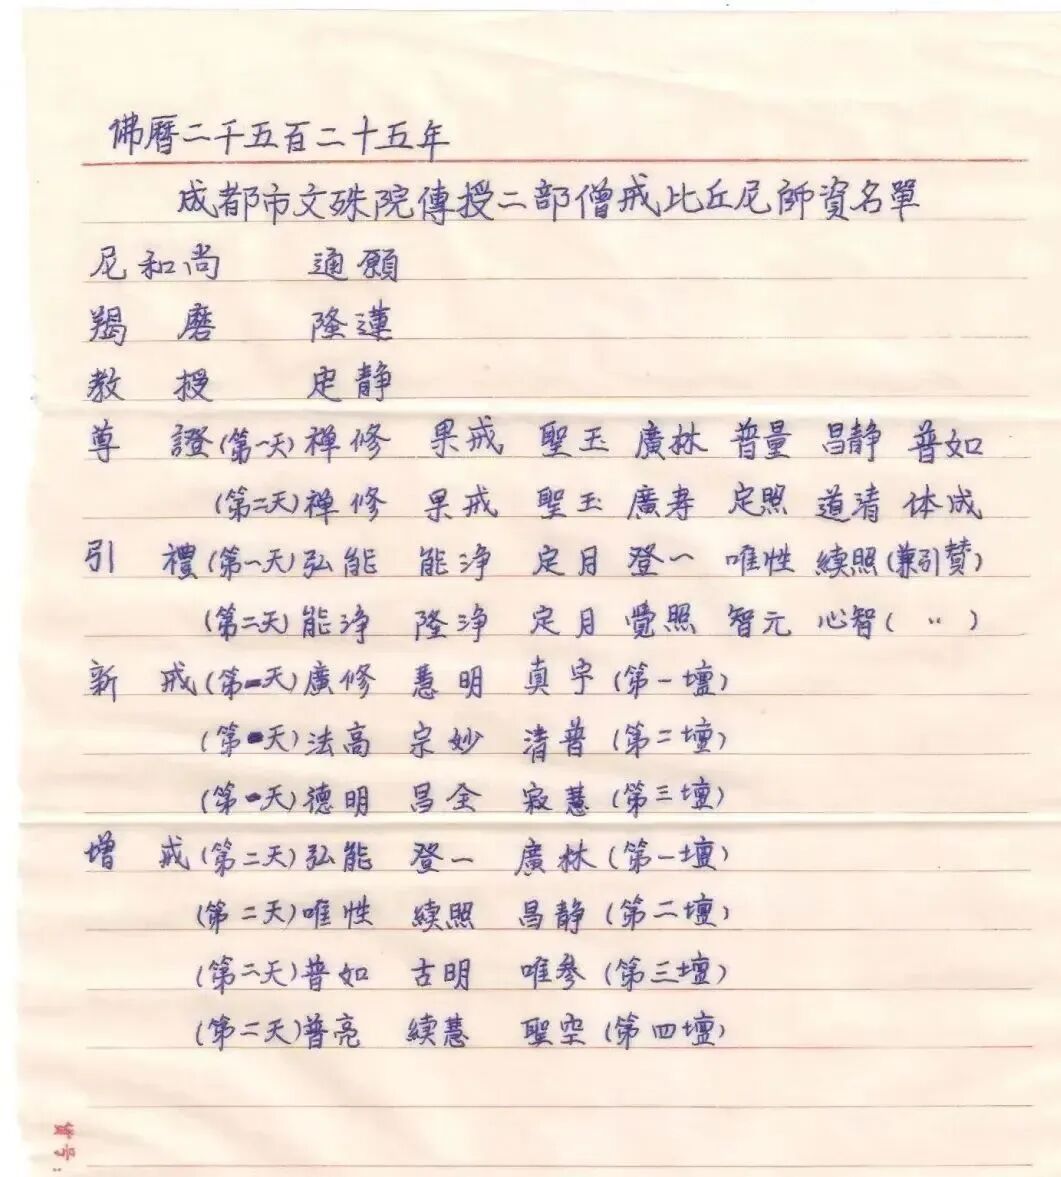 佛曆二千五百二十五年
成都市文殊院傳授二部僧戒比丘尼師資名單
尼和尚 通願
羯磨 隆蓮
教授 定靜
尊證(第一天)禅修 果戒 聖玉 廣林 普量 昌静 普如
(第二天)禅修 果戒 聖玉 廣寿 定照 道清 体成
引禮(第一天)弘能 能净 定月 登一 唯性 續照(兼引贊)
(第二天)能净 隆净 定月 覺照 智元 心智( 〃 )
新戒(第一天)廣修 慧明 真宇(第一壇)
(第一天)法高 宗妙 清普(第二壇)
(第一天)德明 昌全 寂慧(第三壇)
增戒(第二天)弘能 登一 廣林(第一壇)
(第二天)唯性 續照 昌静(第二壇)
(第二天)普如 古明 唯參(第三壇)
(第二天)普亮 續慧 聖空(第四壇)